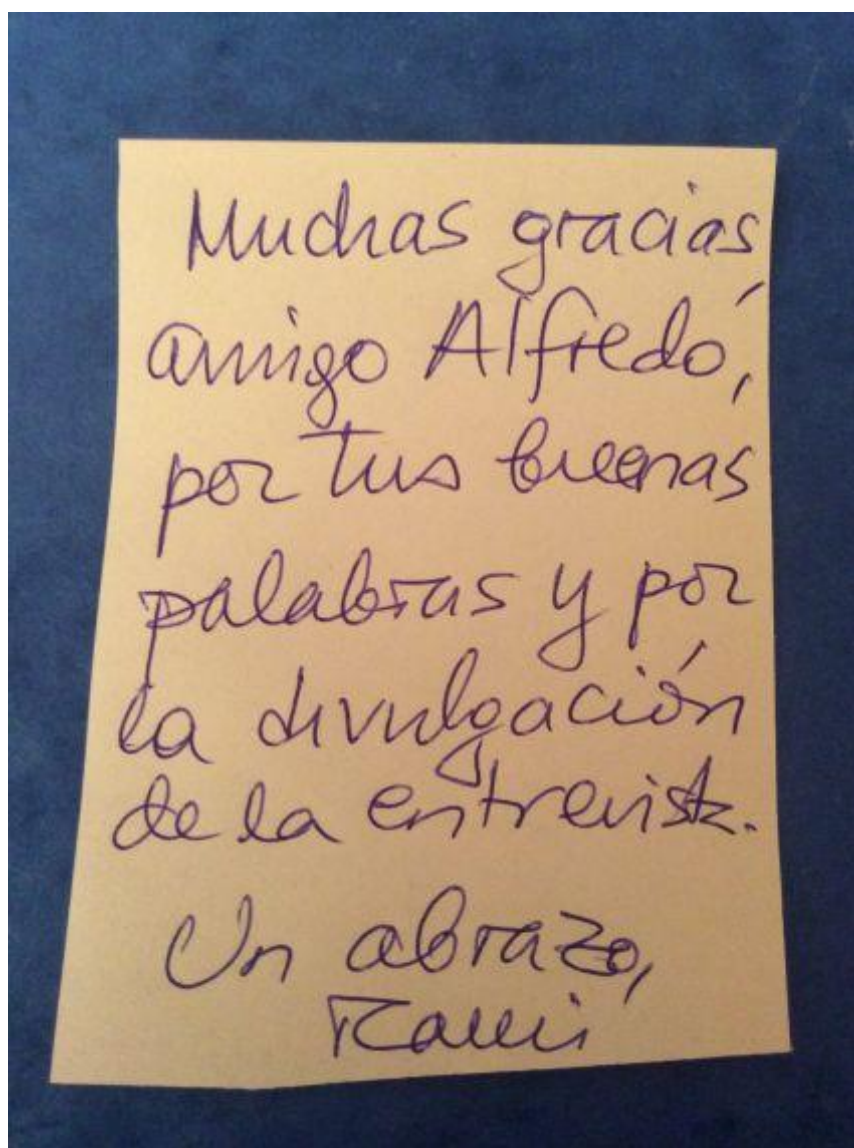 Muchas gracias,
amigo Alfredo,
por tus buenas
palabras y por
la divulgación
de la entrevista.
Un abrazo,